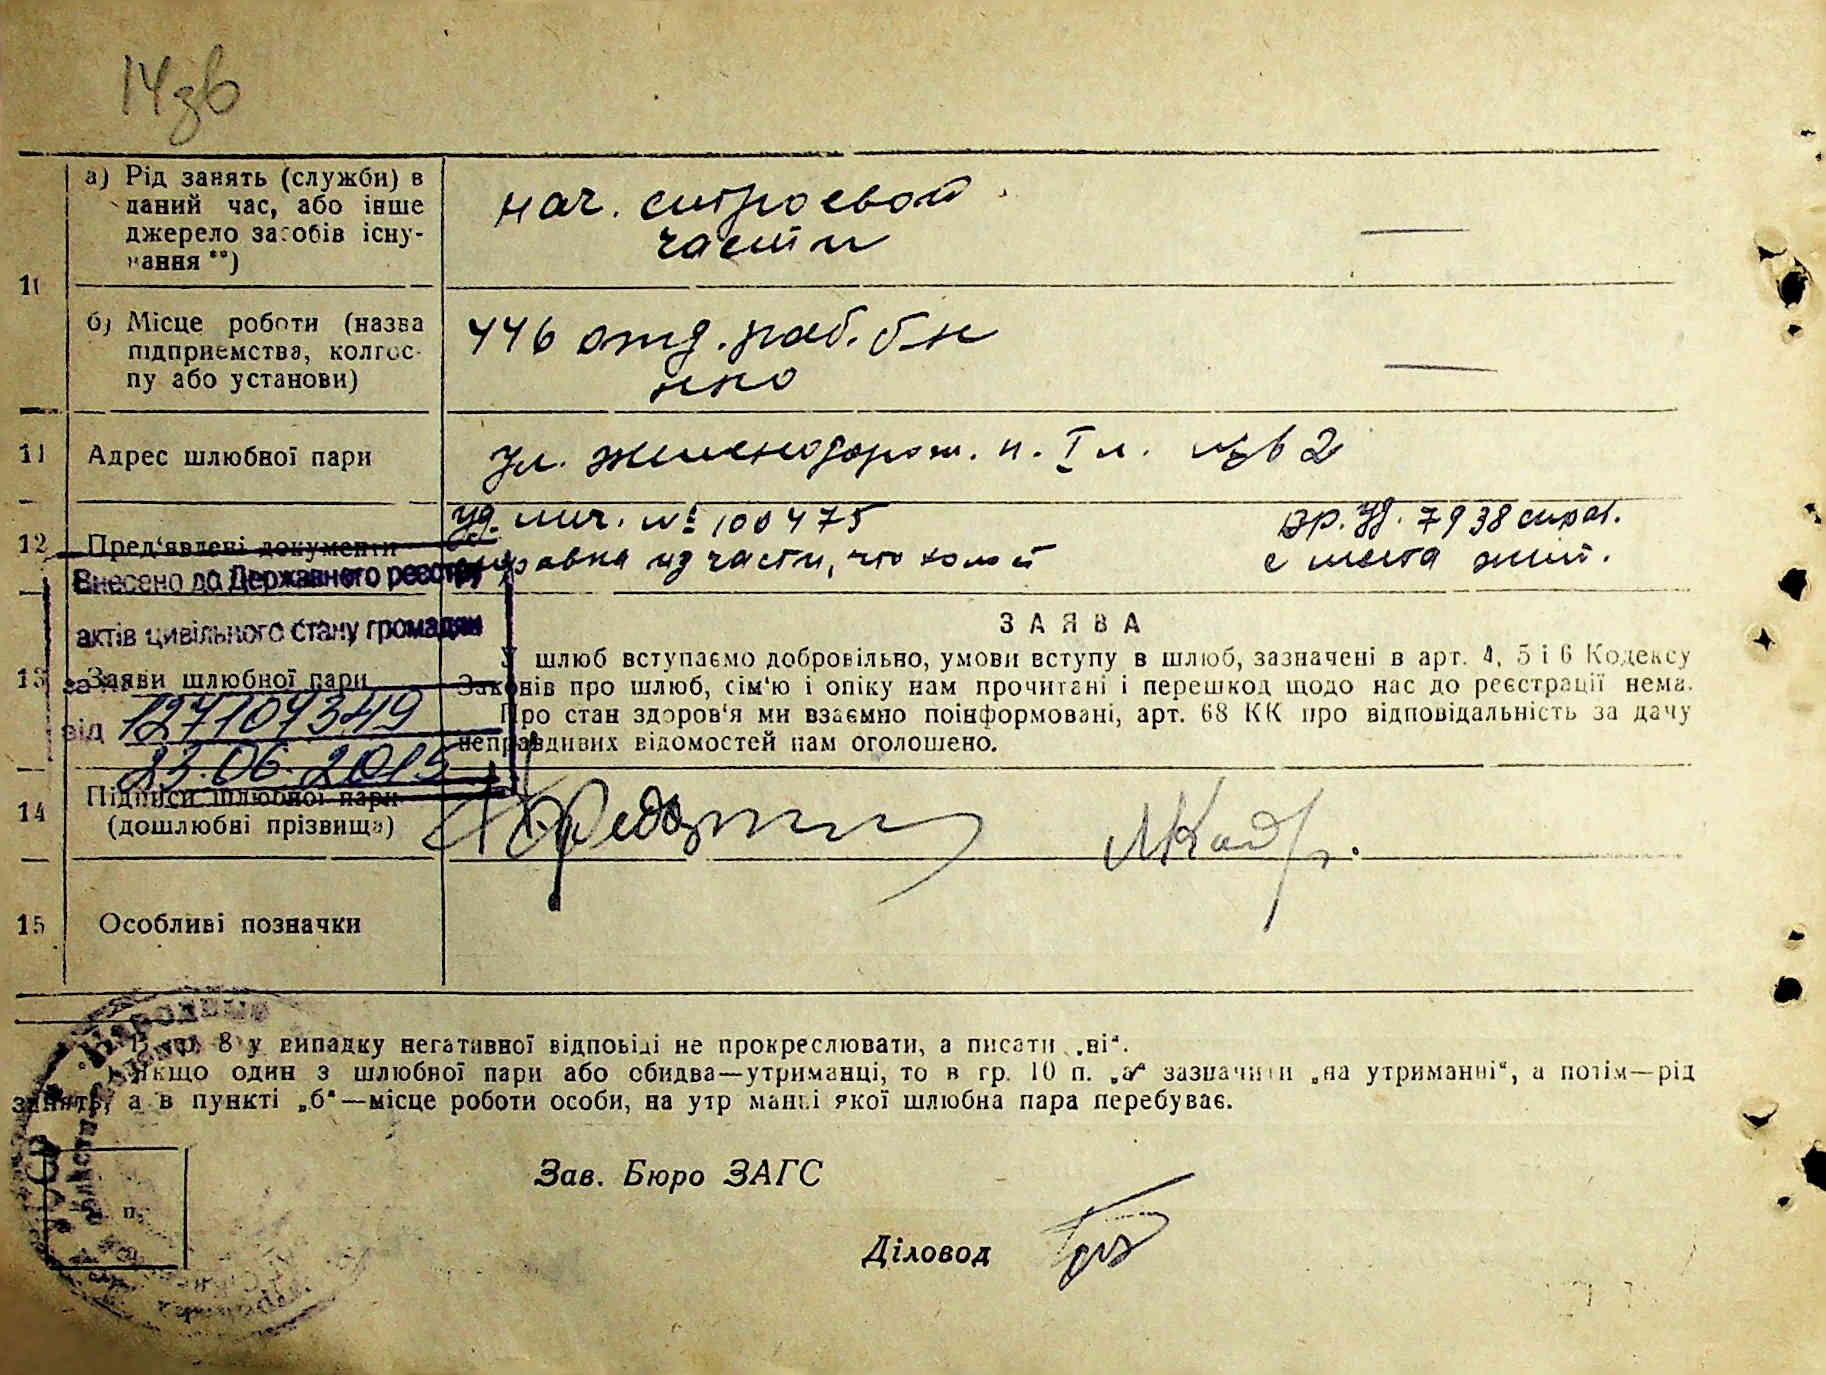 14зв
а) Рід занять (служби) в
даний час, або інше
джерело засобів існу-
вання **)
нач. строевой
части
—
10
б) Місце роботи (назва
підприємства, колгос-
пу або установи)
446 отд. раб. б-н
нко
—
11 Адрес шлюбної пари
ул. железнодорож. п. I л. 2
12 Пред'явлені документи
уд. лич. № 100475
справка из части, что холост
уд. 7938 справ.
с места жит.
Внесено до Державного реєстру
актів цивільного стану громадян
за №
1271074349
від
23.06.2015
13 Заяви шлюбної пари
ЗАЯВА
У шлюб вступаємо добровільно, умови вступу в шлюб, зазначені в арт. 4, 5 і 6 Кодексу
Законів про шлюб, сім'ю і опіку нам прочитані і перешкод щодо нас до реєстрації нема.
Про стан здоров'я ми взаємно поінформовані, арт. 68 КК про відповідальність за дачу
неправдивих відомостей нам оголошено.
14 Підписи шлюбної пари
(дошлюбні прізвища)
15 Особливі позначки
*) В гр. 8 у випадку негативної відповіді не прокреслювати, а писати „ні“.
Якщо один з шлюбної пари або обидва—утриманці, то в гр. 10 п. „а“ зазначити „на утриманні“, а потім—рід
занять, а в пункті „б“—місце роботи особи, на утриманні якої шлюбна пара перебуває.
п.
Зав. Бюро ЗАГС
Діловод